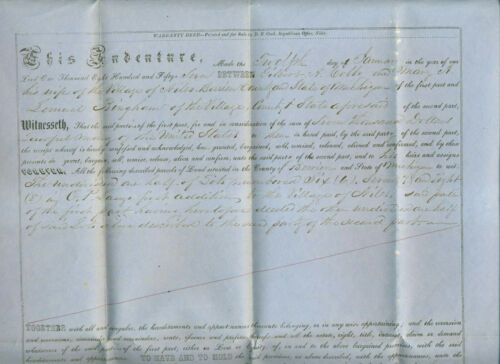 WARRANTY DEED—Printed and for Sale by D. B. Cook, Republican Office, Niles.
This Indenture, Made the Twelfth day of January in the year of our
Lord One Thousand Eight Hundred and Fifty BETWEEN A. Cobb and Mary A.
his wife of the Village of Niles Berrien County and State of Michigan of the first part and
Lemuel Bingham of the Village, County & State aforesaid of the second part,
Witnesseth, That the said parties of the first part, for and in consideration of the sum of Thousand Dollars
of the United States to in hand paid, by the said party of the second part,
the receipt whereof is hereby confessed and acknowledged, have granted, bargained, sold, remised, released, aliened and confirmed, and by these
presents do grant, bargain, sell, remise, release, alien and confirm, unto the said party of the second part, and to his heirs and assigns
FOREVER, All the following described parcels of Land situate in the County of Berrien and State of Michigan to wit:
The undivided one half of Lots numbered Six (6) Seven (7) and Eight
(8) in first addition to the Village of Niles, said parties
of the first part having heretofore deeded the other undivided half
of said Lots above described to the said party of the second part
TOGETHER with all and singular, the hereditaments and appurtenances thereunto belonging, or in any wise appertaining; and the reversion
and reversions, remainder and remainders, rents, issues and profits thereof; and all the estate, right, title, interest, claim or demand
whatsoever of the said parties of the first part, either in Law or Equity, of, in and to the above bargained premises, with the said
hereditaments and appurtenances. TO HAVE AND TO HOLD the said premises, as above described, with the appurtenances, unto the